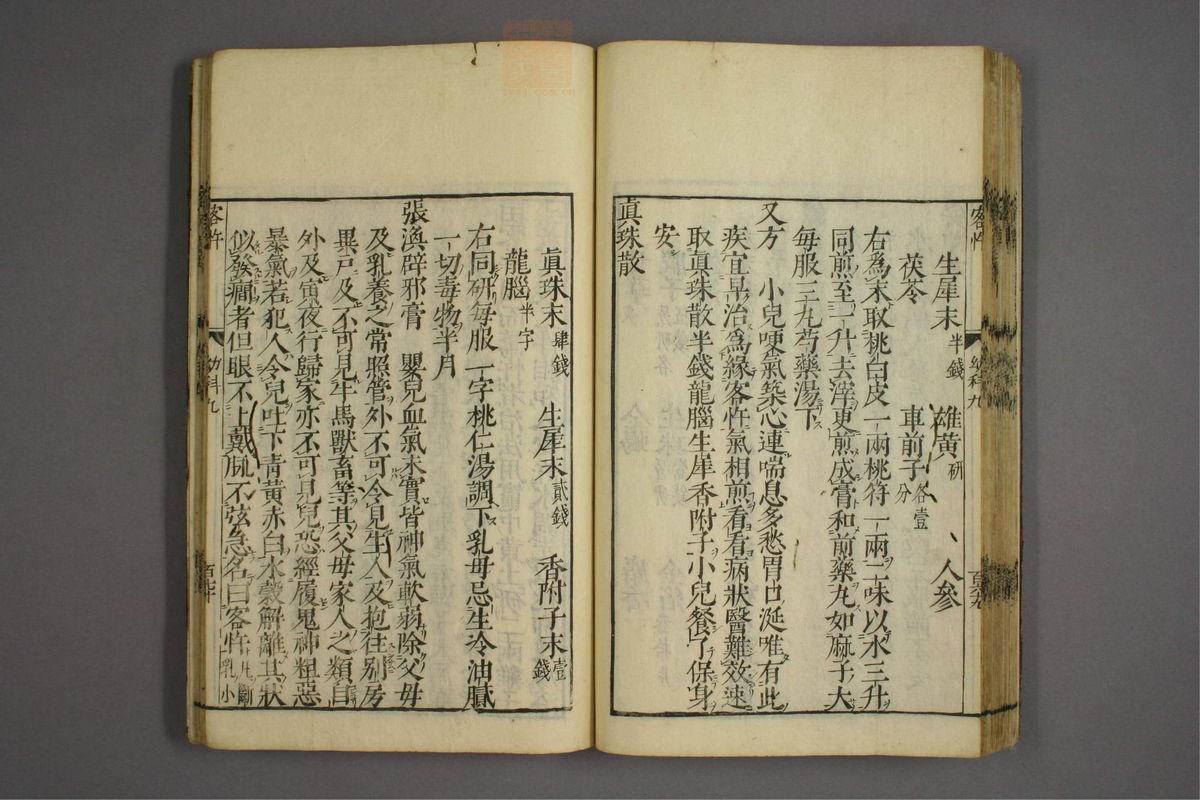 生犀末半錢　雄黃研　人參
茯苓　車前子各壹分
右爲末取桃白皮一兩桃符一兩二味以水三升
同煎至一升去滓更煎成膏和前藥丸如麻子大
每服三丸芍藥湯下
又方　小兒哽氣築心連喘息多愁胃口涎唯有此
疾宜早治爲緣客忤氣相煎看看病狀醫難效速
取眞珠散半錢龍腦生犀香附子小兒餐了保身
安
眞珠散
眞珠末肆錢　生犀末貳錢　香附子末壹錢
龍腦半字
右同研每服一字桃仁湯調下乳母忌生冷油膩
一切毒物半月
張渙辟邪膏　嬰兒血氣未實皆神氣軟弱除父母
及乳養之常照管外不可令見生人及抱往别房
異戸及不可見牛馬獸畜等其父母家人之類自
外及寅夜行歸家亦不可見兒恐經履鬼神粗惡
暴氣若犯人令兒吐下青黃赤白水穀解離其狀
似發癎者但眼不上戴脈不弦急名曰客忤
客忤
幼科九